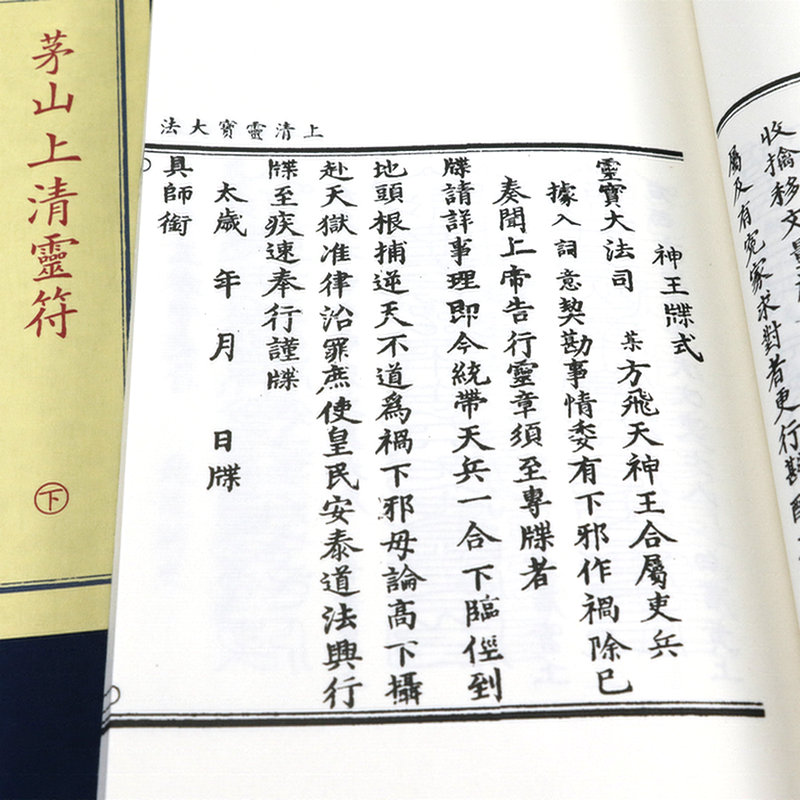 茅山上清靈符
下
上清靈寶大法
神王牒式
靈寶大法司 某方飛天神王合屬吏兵
據入詞意契勘事情委有下邪作禍除已
奏聞上帝告行靈章須至專牒者
牒請詳事理即今統帶天兵一合下臨徑到
地頭根捕逆天不道爲禍下邪毋論高下攝
赴天獄准律治罪庶使皇民安泰道法興行
牒至疾速奉行謹牒
太歲 年 月 日牒
具師銜
收擒移文
屬及有冤家求對者更行